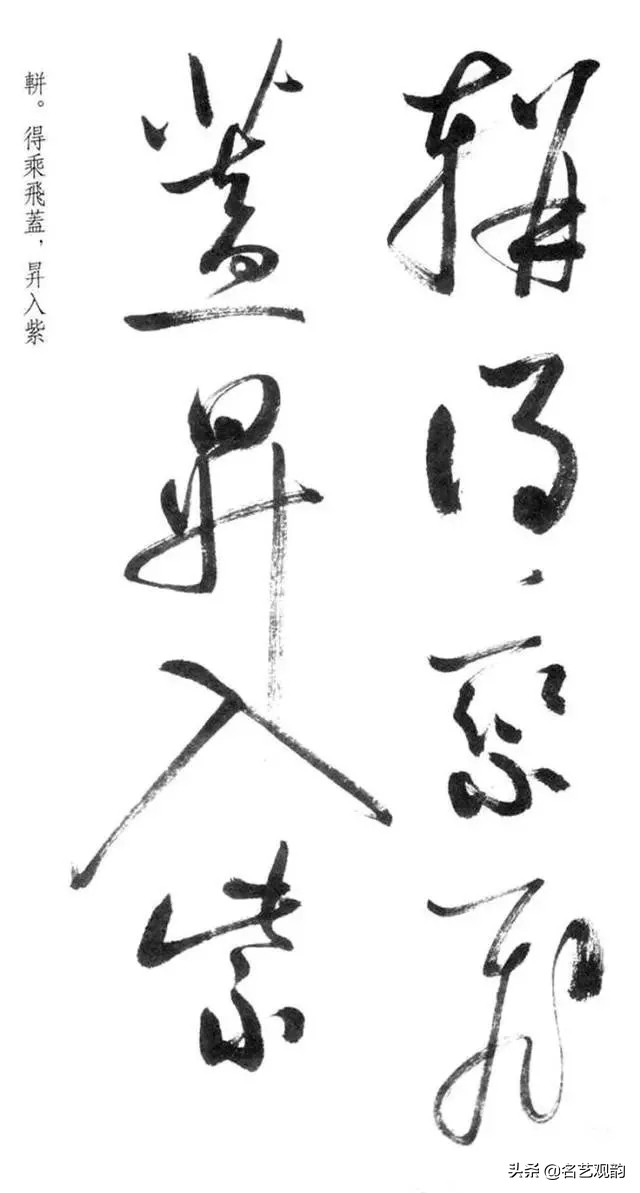 軿得乘飛
蓋昇入紫
軿。得乘飛蓋，昇入紫
头条 @名艺观韵